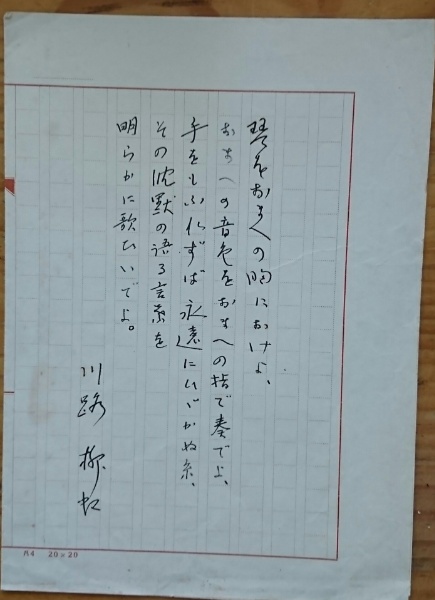 琴をおまへの胸におけよ、
おまへの音色をおまへの指で奏でよ、
手をもふれずば永遠にひゞかぬ糸、
その沈黙の語る言葉を
明らかに歌ひいでよ。
川路柳虹
A4 20×20